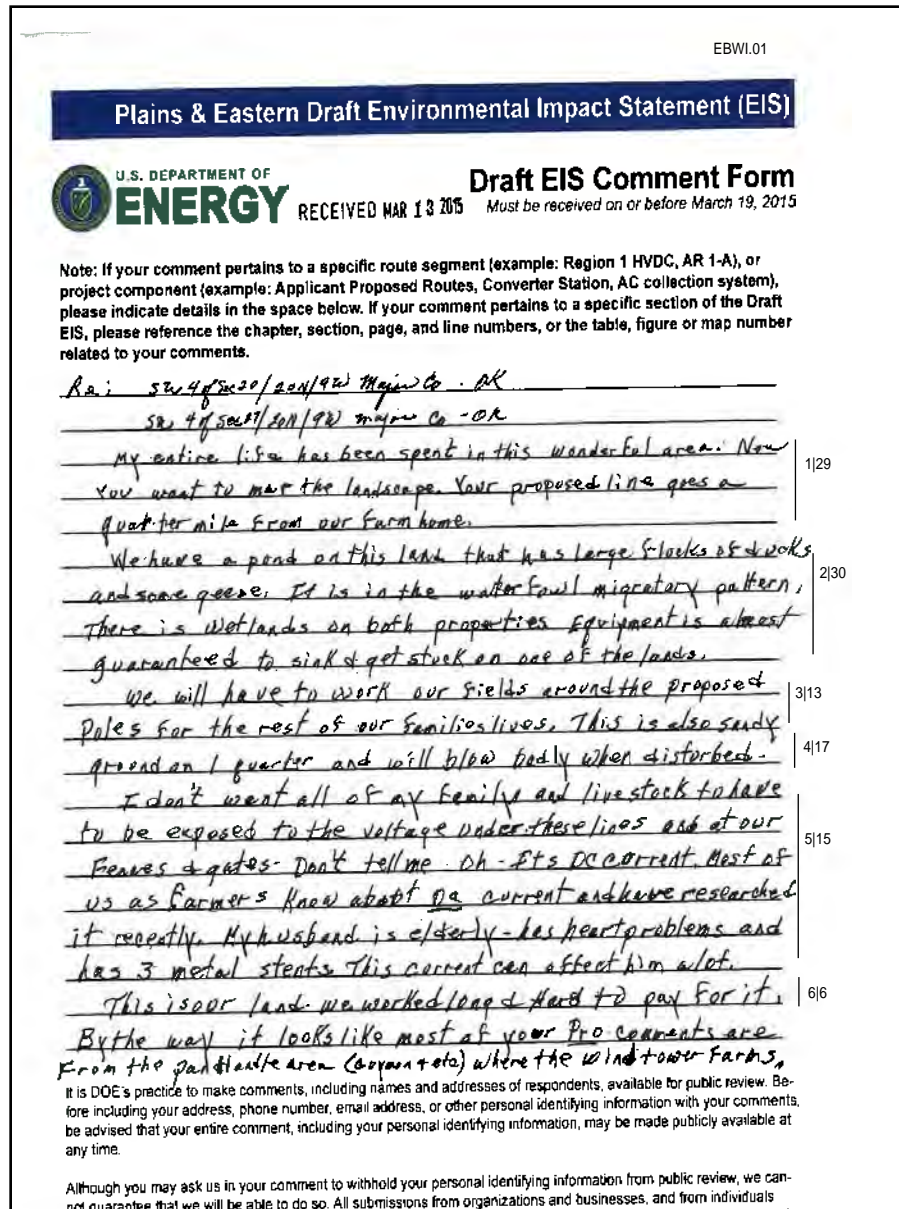 EBWI.01
Plains & Eastern Draft Environmental Impact Statement (EIS)
U.S. DEPARTMENT OF
ENERGY
RECEIVED MAR 13 2015
Draft EIS Comment Form
Must be received on or before March 19, 2015
Note: If your comment pertains to a specific route segment (example: Region 1 HVDC, AR 1-A), or
project component (example: Applicant Proposed Routes, Converter Station, AC collection system),
please indicate details in the space below. If your comment pertains to a specific section of the Draft
EIS, please reference the chapter, section, page, and line numbers, or the table, figure or map number
related to your comments.
Re: SW 4 of Sec 20/20N/9W Major Co - OK
SW 4 of Sec 17/20N/9W major Co - OK
My entire life has been spent in this wonderful area. Now
You want to mar the landscape. Your proposed line goes a
quarter mile from our farm home.
1|29
We have a pond on this land that has large flocks of ducks
and some geese. It is in the waterfowl migratory pattern,
There is wetlands on both properties Equipment is almost
guaranteed to sink & get stuck on one of the lands.
2|30
We will have to work our fields around the proposed
Poles for the rest of our families lives. This is also sandy
3|13
ground on 1 quarter and will blow badly when disturbed.
4|17
I don't want all of my family and livestock to have
to be exposed to the voltage under these lines and at our
Fences & gates- Don't tell me Oh - Its DC current. Most of
us as farmers know about DC current and have researched
it recently. My husband is elderly - has heart problems and
has 3 metal stents This current can affect him alot.
5|15
This is our land. we worked long & Hard to pay for it.
6|6
By the way it looks like most of your Pro comments are
From the panHandle area (Guymon + etc) where the wind tower Farms.
It is DOE's practice to make comments, including names and addresses of respondents, available for public review. Be-
fore including your address, phone number, email address, or other personal identifying information with your comments,
be advised that your entire comment, including your personal identifying information, may be made publicly available at
any time.
Although you may ask us in your comment to withhold your personal identifying information from public review, we can-
not guarantee that we will be able to do so. All submissions from organizations and businesses, and from individuals